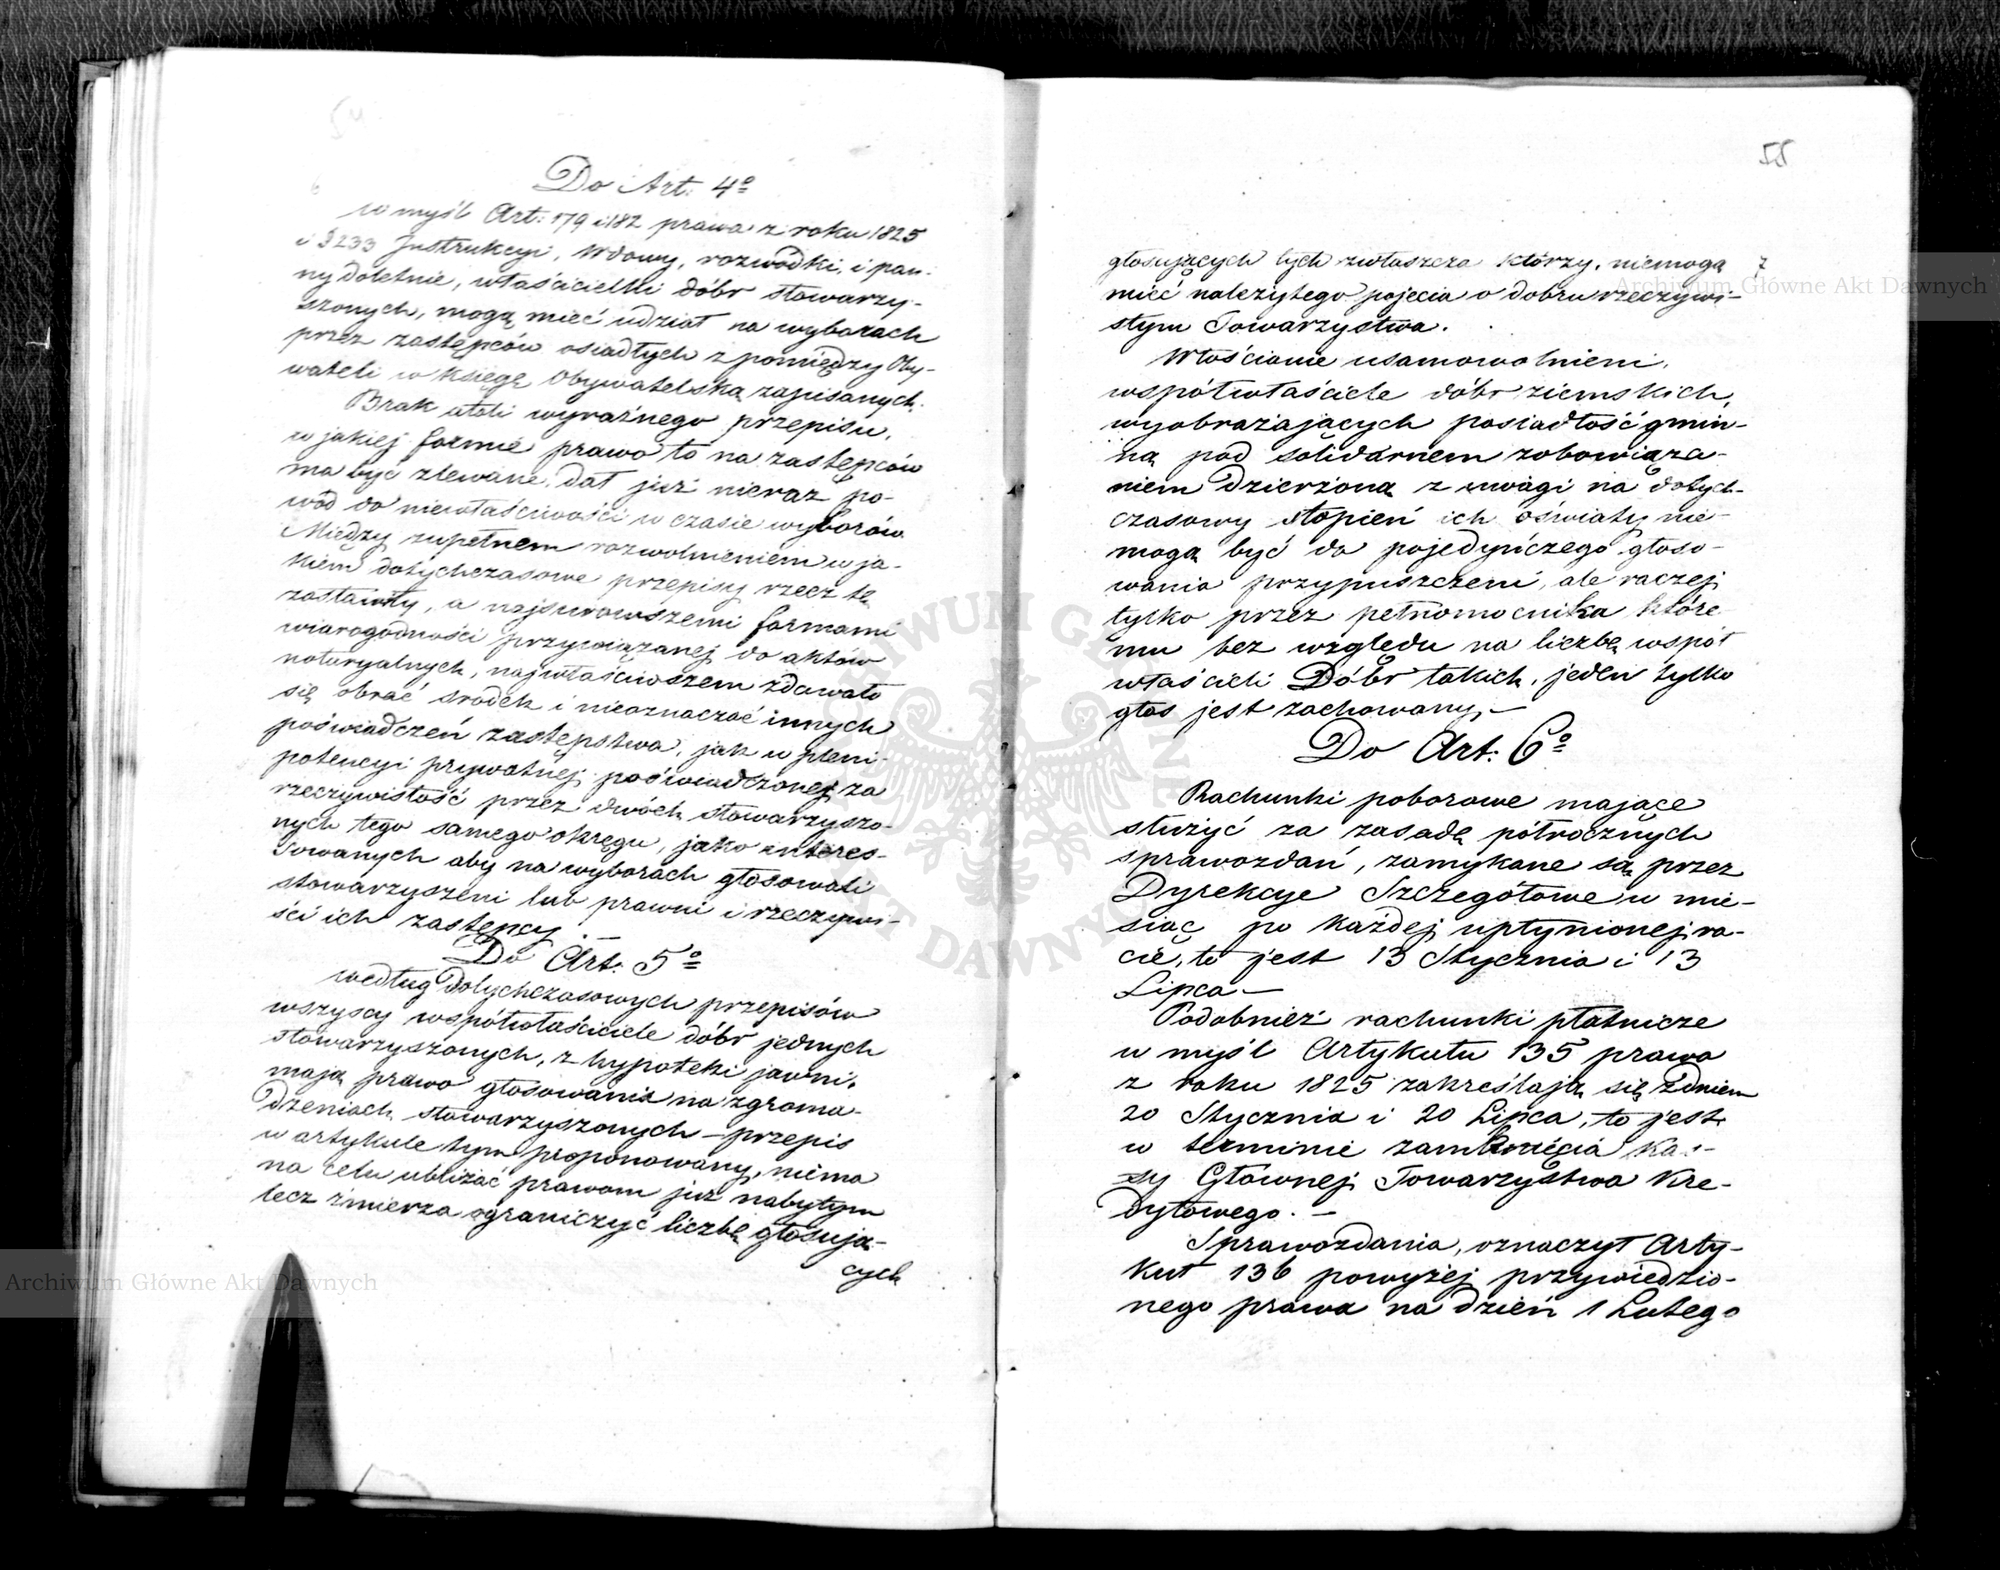 54
6
Do Art: 4º
w myśl Art: 179 i 182 prawa z roku 1825
i § 233 Instrukcyi, Wdowy, rozwódki, i pan-
ny doletnie, właścicielki dóbr stowarzy-
szonych, mogą mieć udział na wyborach
przez zastępców osiadłych z pomiędzy Oby-
wateli w księgę Obywatelską zapisanych.
Brak atoli wyraźnego przepisu,
w jakiej formie prawo to na zastępców
ma być zlewane, dał już nieraz po-
wód do niewłaściwości w czasie wyborów
Między zupełnem rozwolnieniem w ja-
kiem dotychczasowe przepisy rzecz tę
zostawiły, a najsurowszemi formami
wiarogodności przywiązanej do aktów
notaryalnych, najwłaściwszem zdawało
się obrać srodek i nieoznaczać innych
poświadczeń zastępstwa, jak w pleni-
potencyi prywatnej poświadczonej za
rzeczywistość przez dwóch stowarzyszo-
nych tego samego okręgu, jako interes-
sowanych aby na wyborach głosowali
stowarzyszeni lub prawni i rzeczywi-
ści ich zastępcy. —
Do Art: 5º
według dotychczasowych przepisów
wszyscy współwłaściciele dóbr jednych
stowarzyszonych, z hypoteki jawni,
mają prawo głosowania na zgroma-
dzeniach stowarzyszonych – przepis
w artykule tym proponowany, niema
na celu ubliżać prawom już nabytym
lecz zmierza ograniczyć liczbę głosują-
cych
55
głosujących tych zwłaszcza którzy, niemogą 7
mieć należytego pojęcia o dobru rzeczywi-
stym Towarzystwa.
Włościanie usamowolnieni,
współwłaściciele dóbr ziemskich,
wyobrażających posiadłość gmin-
ną pod solidarnem zobowiąza-
niem dzierżoną z uwagi na dotych-
czasowy stopień ich oświaty nie-
mogą być do pojedyńczego głoso-
wania przypuszczeni, ale raczej
tylko przez pełnomocnika, które-
mu bez względu na liczbę współ
właścicieli Dóbr takich, jeden tylko
głos jest zachowany, —
Do Art: 6º
Rachunki poborowe mające
służyć za zasadę półrocznych
sprawozdań, zamykane są przez
Dyrekcye Szczegółowe w mie-
siąc po każdej upłynionej ra-
cie, to jest 13 Stycznia i 13
Lipca —
Podobnież rachunki płatnicze
w myśl Artykułu 135 prawa
z roku 1825 zakreślają się z dniem
20 Stycznia i 20 Lipca, to jest
w terminie zamknięcia Ka-
sy Głównej Towarzystwa Kre-
dytowego. —
Sprawozdania, oznaczył Arty-
kuł 136 powyżej przywiedzio-
nego prawa na dzień 1 Lutego
Archiwum Główne Akt Dawnych
Archiwum Główne Akt Dawnych
ARCHIWUM GŁÓWNE AKT DAWNYCH